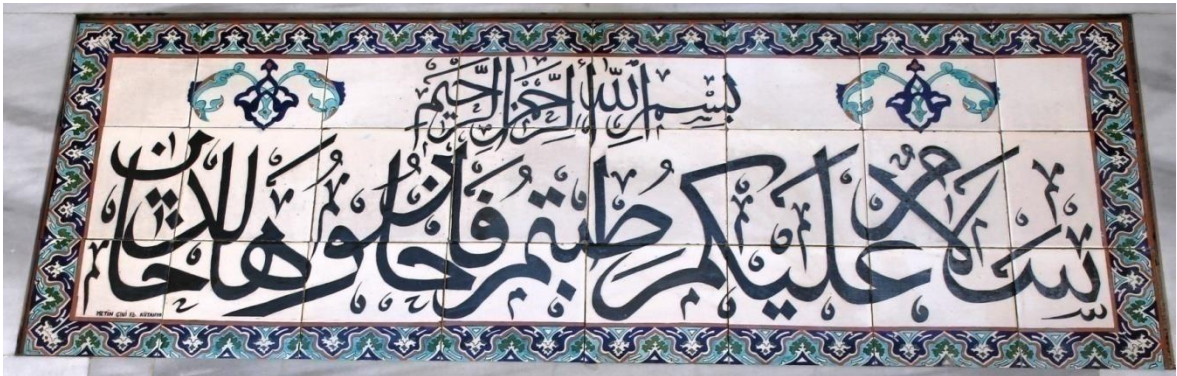 بسم الله الرحمن الرحيم
سلام عليكم طبتم فادخلوها خالدين
METİN ÇİNİ ES. KÜTAHYA